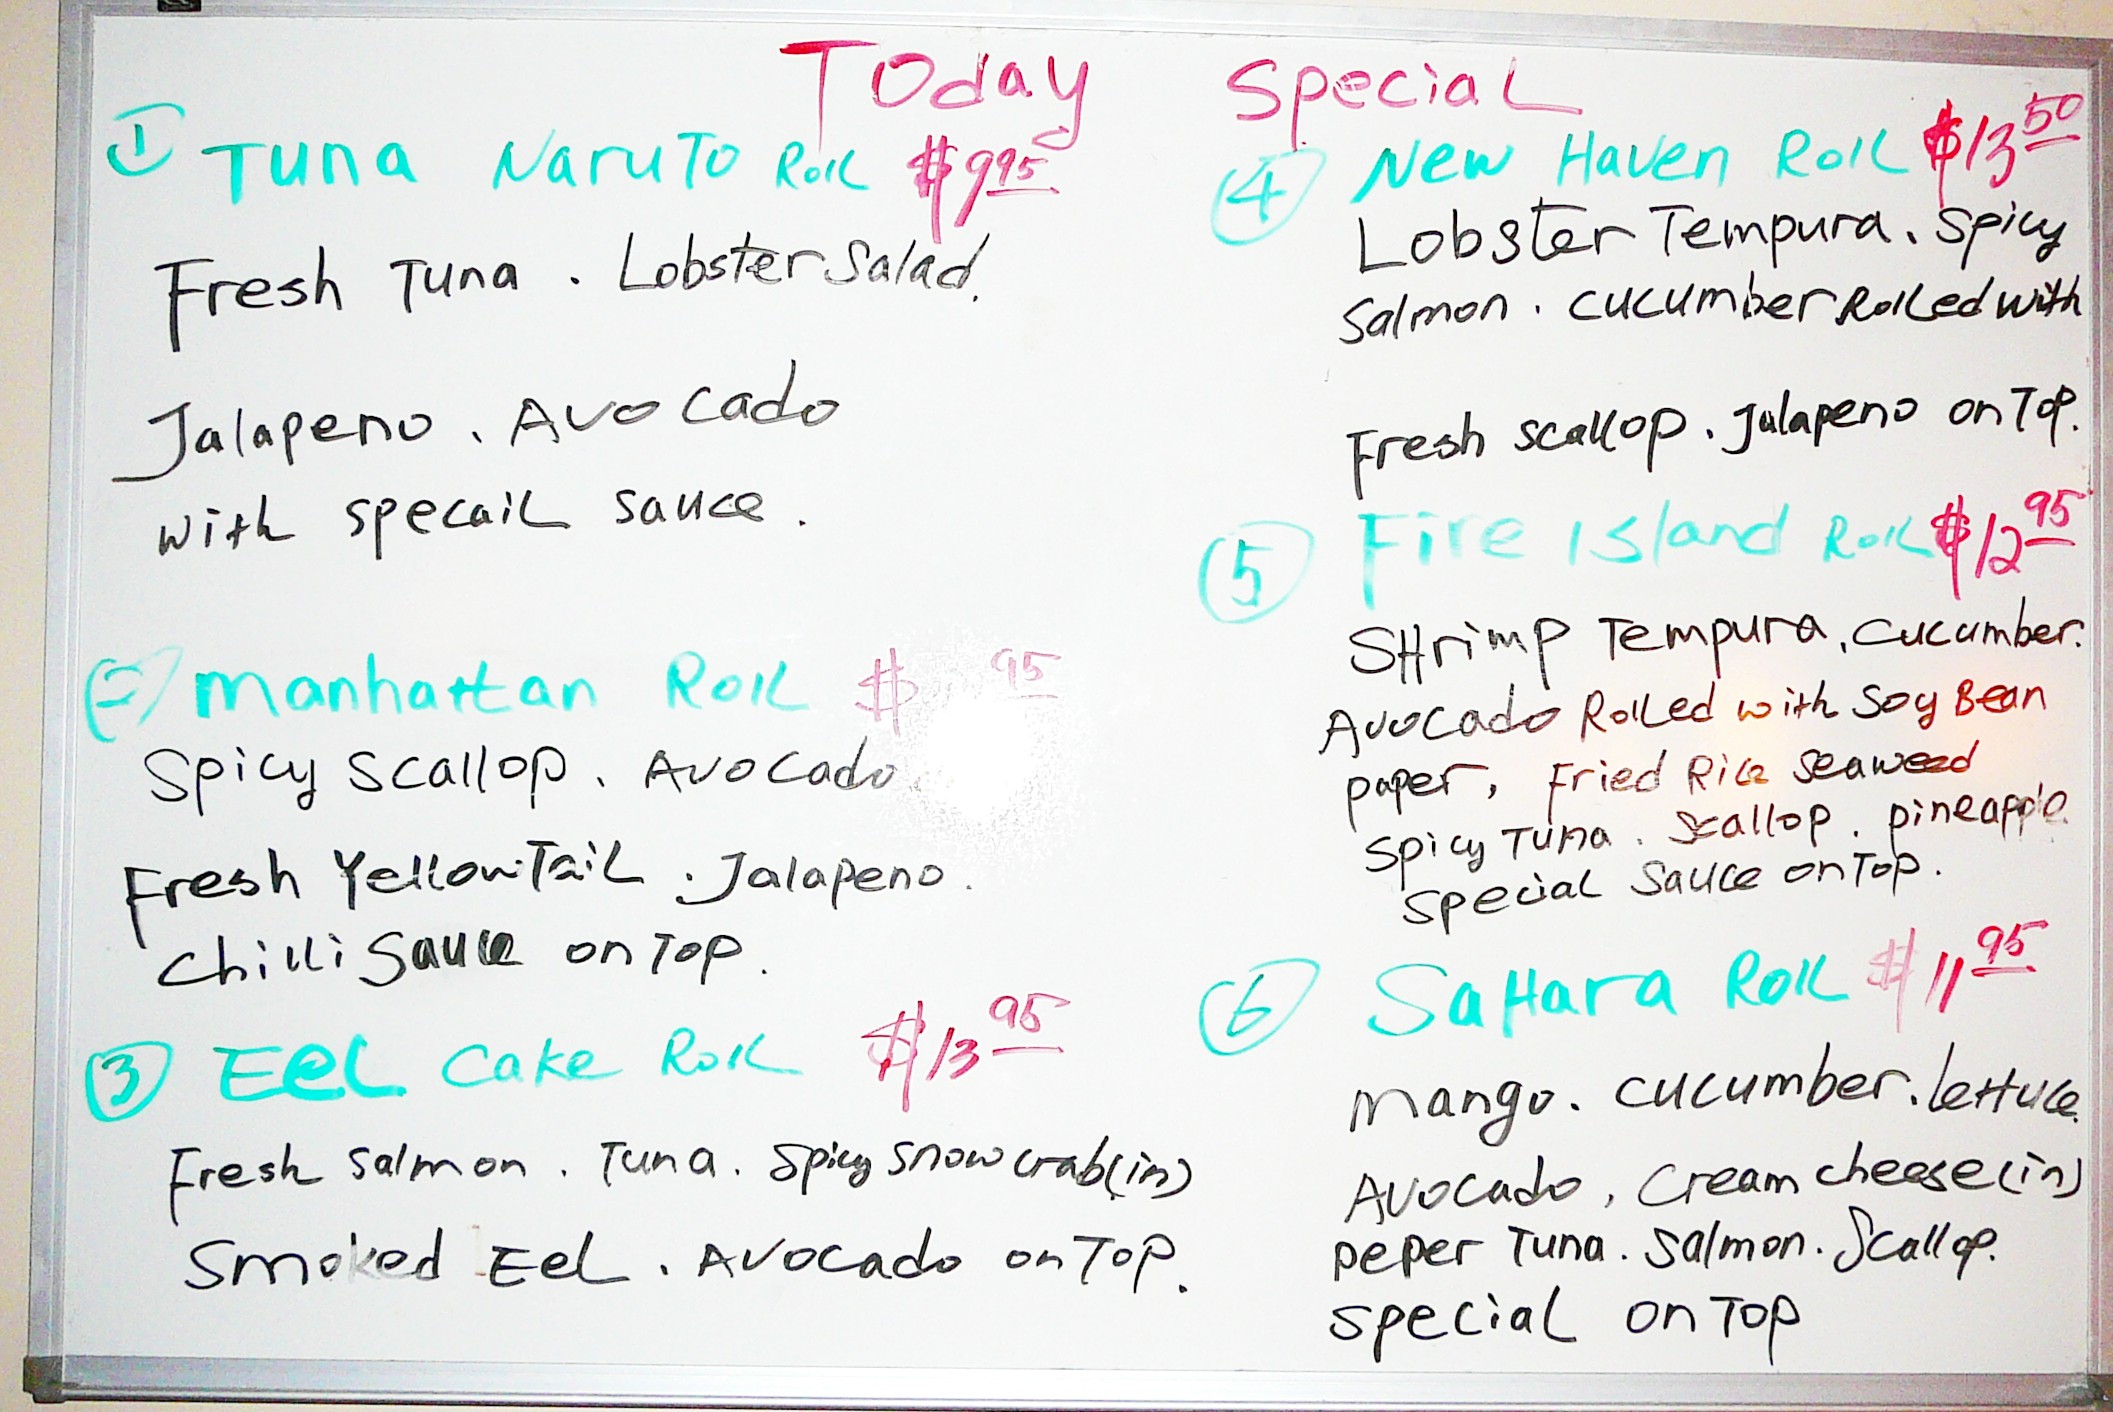 Today Special
① Tuna Naruto Roll $9.95
Fresh Tuna. Lobster Salad.
Jalapeno, Avocado
with specail sauce.
Manhattan Roll $ 95
Spicy scallop, Avocado
Fresh YellowTail. Jalapeno.
chilli Sauce on Top.
③ Eel Cake Roll $13.95
Fresh salmon. Tuna. Spicy snow crab(in)
Smoked Eel, Avocado on Top.
④ New Haven Roll $13.50
Lobster Tempura, Spicy
Salmon. cucumber Rolled with
Fresh scallop. Jalapeno on Top.
⑤ Fire Island Roll $12.95
SHrimp Tempura, cucumber.
Avocado Rolled with Soy Bean
paper, Fried Rice Seaweed
Spicy Tuna. Scallop. pineapple.
Special Sauce on Top.
⑥ SaHara Roll $11.95
mango. cucumber. lettuce.
Avocado, Cream cheese(in)
peper Tuna. Salmon. Scallop.
special on Top